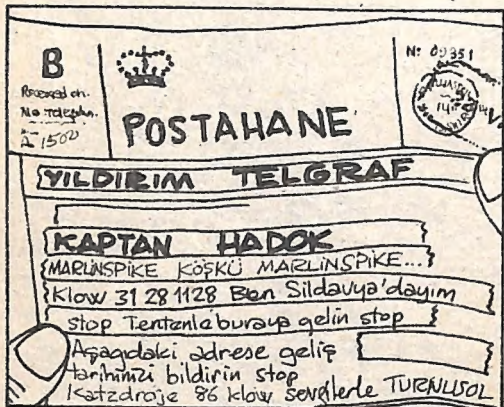 B
Received on.
No Telephn.
A 1500
POSTAHANE
No: 09351
14
YILDIRIM TELGRAF
KAPTAN HADOK
MARLINSPIKE KÖŞKÜ MARLİNSPİKE...
Klow 31 28 1128 Ben Sildavya'dayım
stop Tentenle buraya gelin stop
Aşağıdaki adrese geliş
tarihinizi bildirin stop
Katzdroje 86 klow sevgilerle TURNUSOL